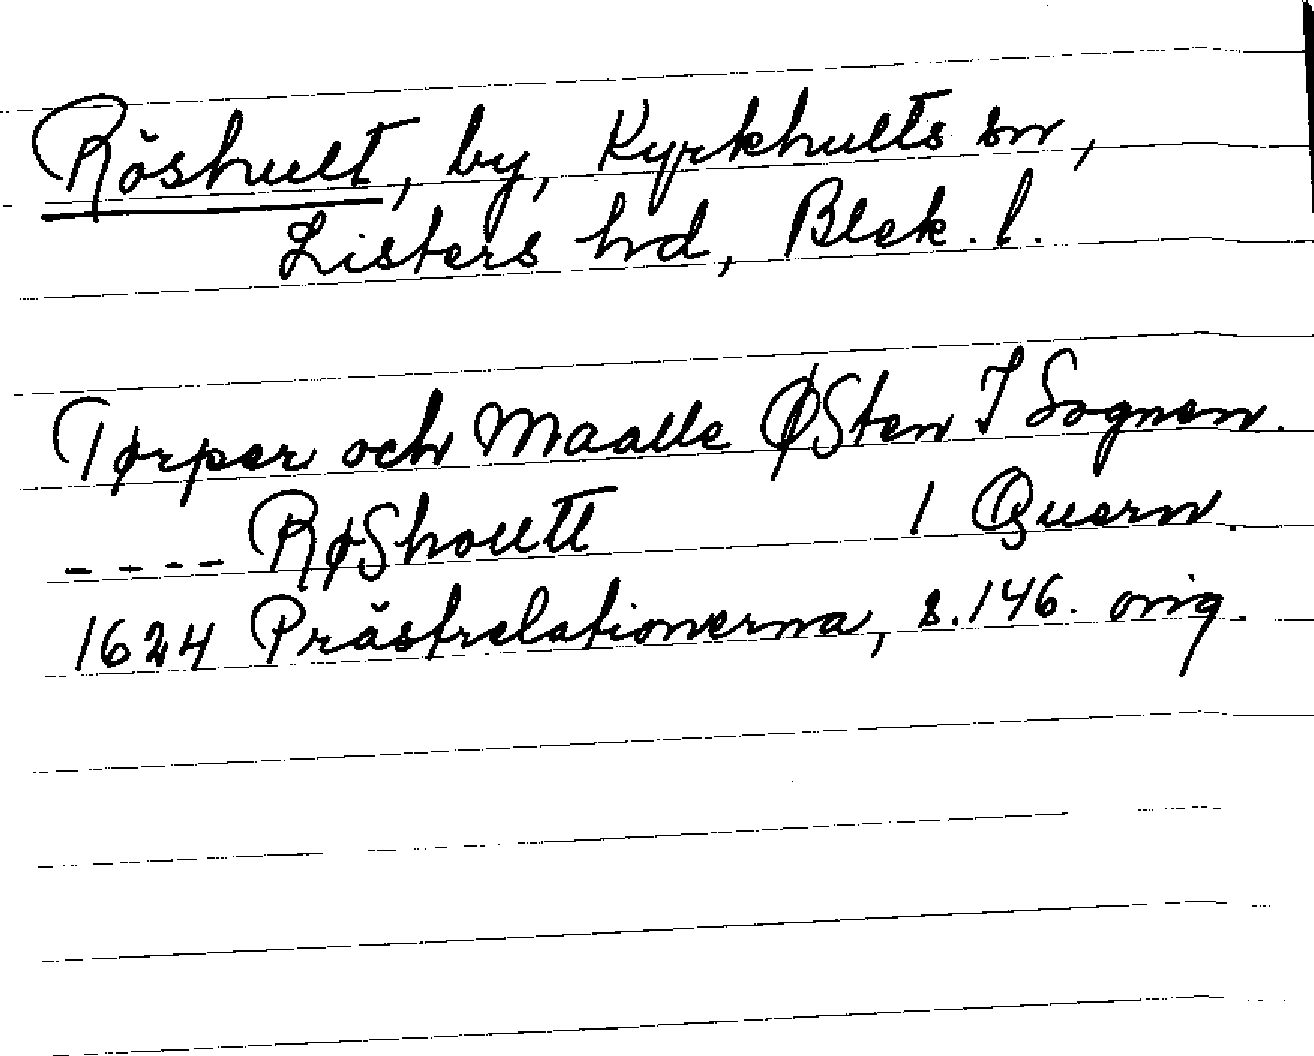 Röshult, by, Kyrkhults sn,
Listers hd, Blek. l.
Tørper och Maalle ØSten I Sognen.
---- RøShollt 1 Quern.
1624 Prästrelationerna, s. 146. orig.